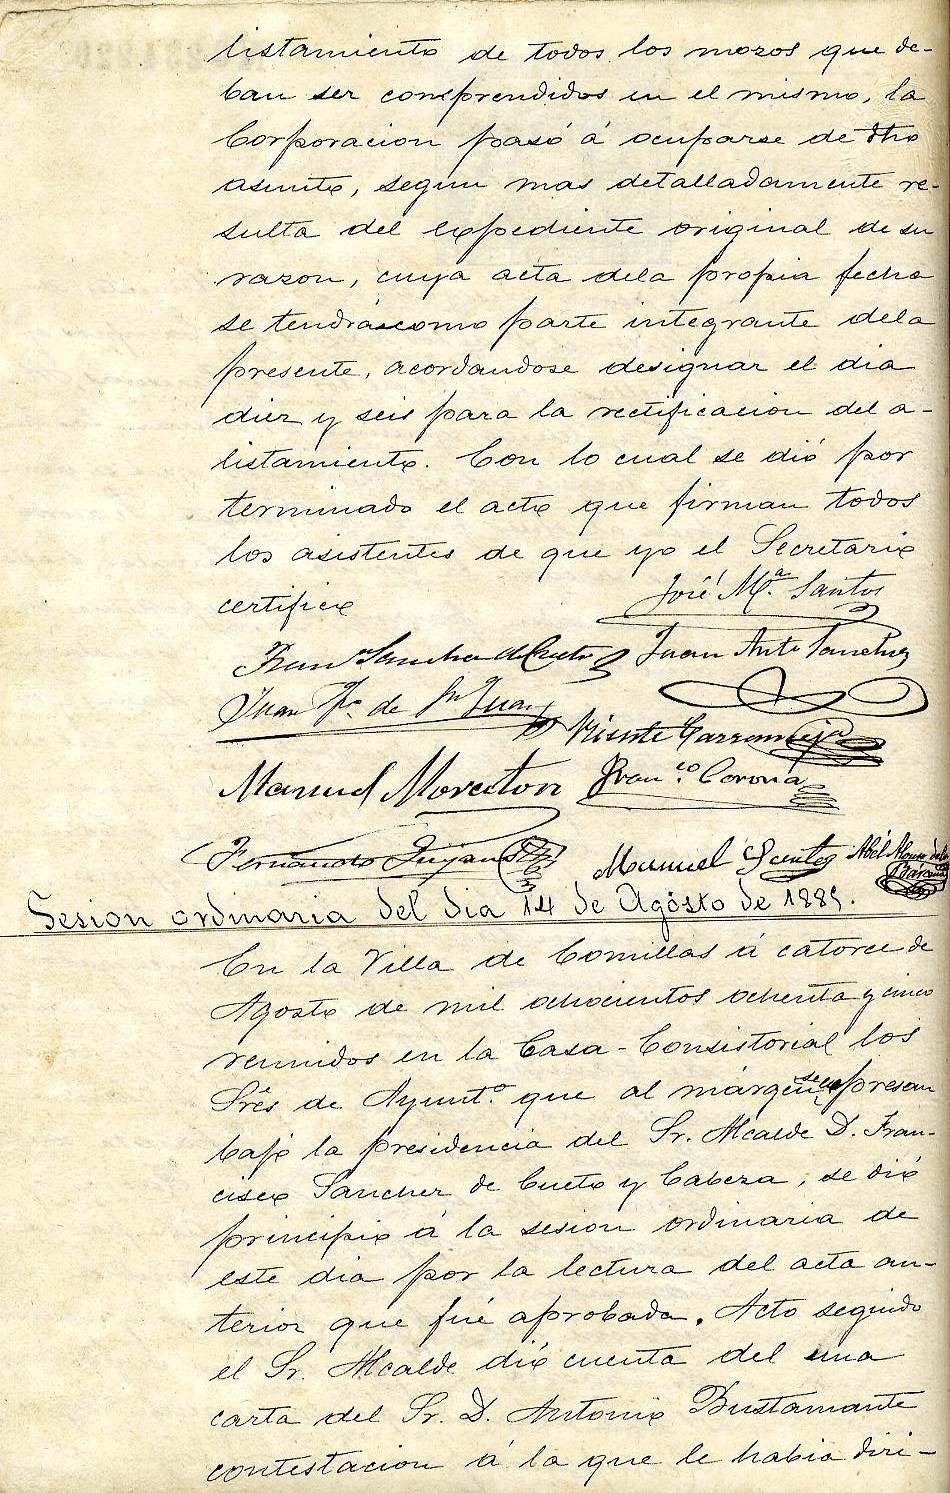 listamiento de todos los mozos que de-
ban ser comprendidos en el mismo, la
Corporacion pasó á ocuparse de dho
asunto, segun mas detalladamente re-
sulta del expediente original de su
razon, cuya acta dela propia fecha
se tendrá como parte integrante dela
presente, acordandose designar el dia
diez y seis para la rectificacion del a-
listamiento. Con lo cual se dió por
terminado el acto que firman todos
los asistentes de que yo el Secretario
certifico
José Mª. Santos
Franco Sanchez de Cueto
Juan Anto Sanchez
Juan Fº. de Sn Juan
Vicente
Manuel
Franco. Corona
Fernando
Manuel Santos
Abél Alonso de la
Bárcena
Sesion ordinaria del dia 14 de Agosto de 1885.
En la Villa de Comillas á catorce de
Agosto de mil ochocientos ochenta y cinco
reunidos en la Casa-Consistorial los
Sres de Ayuntº. que al márgen se espresan
bajo la presidencia del Sr. Alcalde D. Fran-
cisco Sanchez de Cueto y Cabeza, se dió
principio á la sesion ordinaria de
este dia por la lectura del acta an-
terior que fué aprobada. Acto seguido
el Sr. Alcalde dió cuenta del una
carta del Sr. D. Antonio Bustamante
contestacion á la que le habia diri-